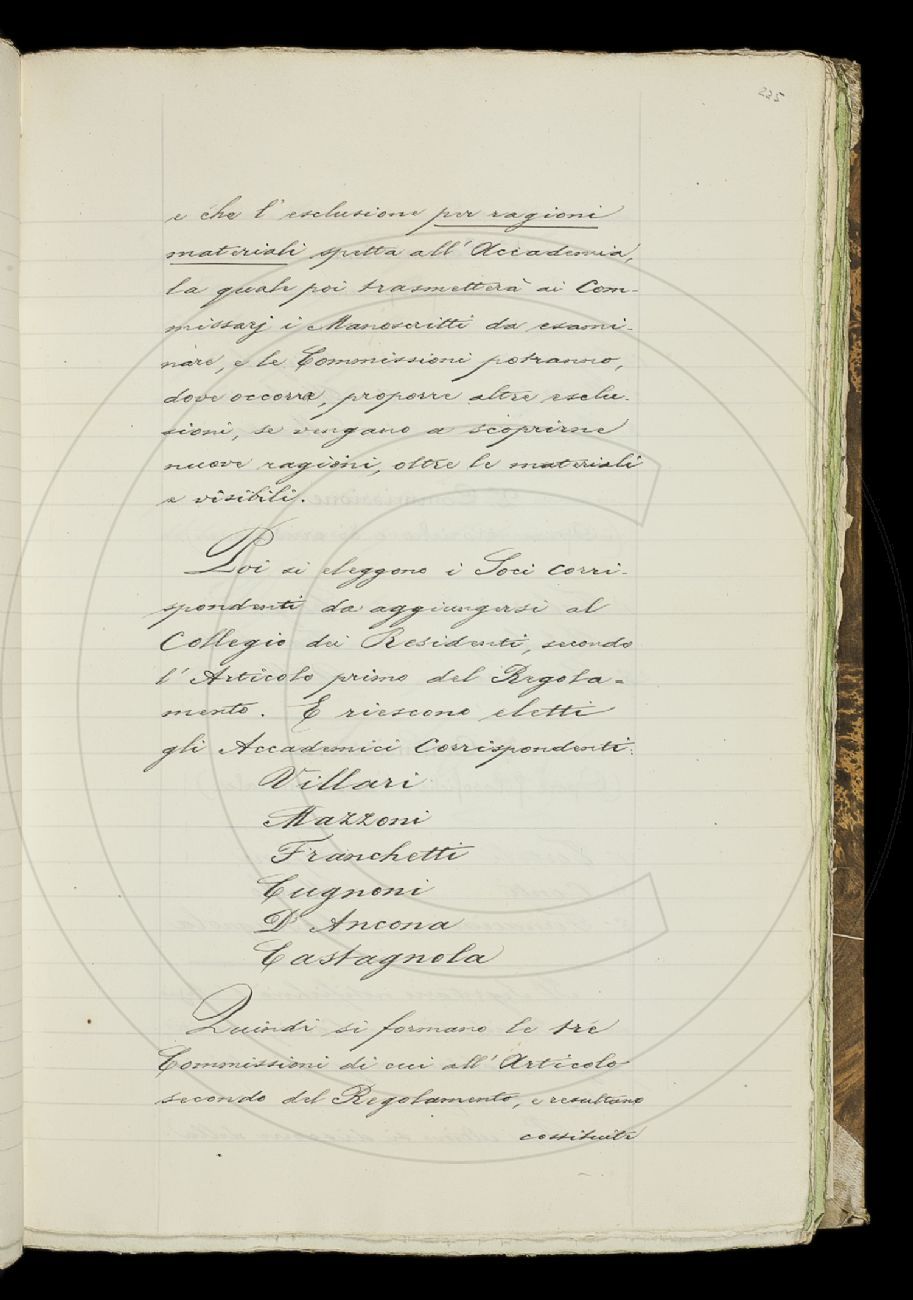 225
e che l'esclusione per ragioni
materiali spetta all'Accademia,
la quale poi trasmetterà ai Com-
missarj i Manoscritti da esami-
nare, e le Commissioni potranno,
dove occorra, proporre altre esclu-
sioni, se vengano a scoprirne
nuove ragioni, oltre le materiali
e visibili.
Poi si eleggono i Soci corri-
spondenti da aggiungersi al
Collegio dei Residenti, secondo
l'Articolo primo del Regola-
mento. E riescono eletti
gli Accademici Corrispondenti:
Villari
Mazzoni
Franchetti
Cugnoni
D'Ancona
Castagnola
Quindi si formano le tre
Commissioni di cui all'Articolo
secondo del Regolamento, e resultano
costituite